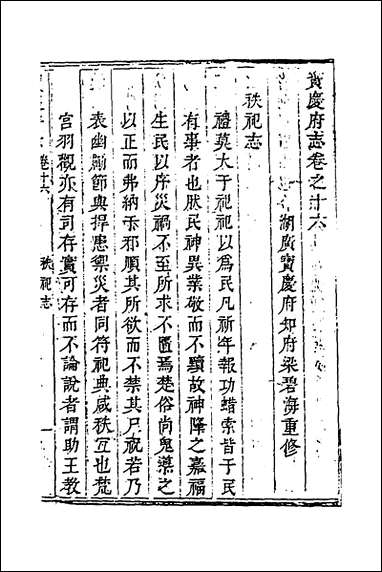 寳慶府志卷之十六
湖廣寳慶府知府梁碧海重修
秩祀志
禮莫大于祀祀以為民凡祈年報功蜡索皆于民
有事者也民神異業敬而不黷故神降之嘉福
生民以序災禍不至所求不匱焉楚俗尚鬼導之
以正而弗納于邪順其所欲而不禁其尸祝若乃
表幽闡節與捍患禦災者同符祀典咸秩宜也梵
宫羽觀亦有司存實可存而不論說者謂助王教
卷十六
秩祀志